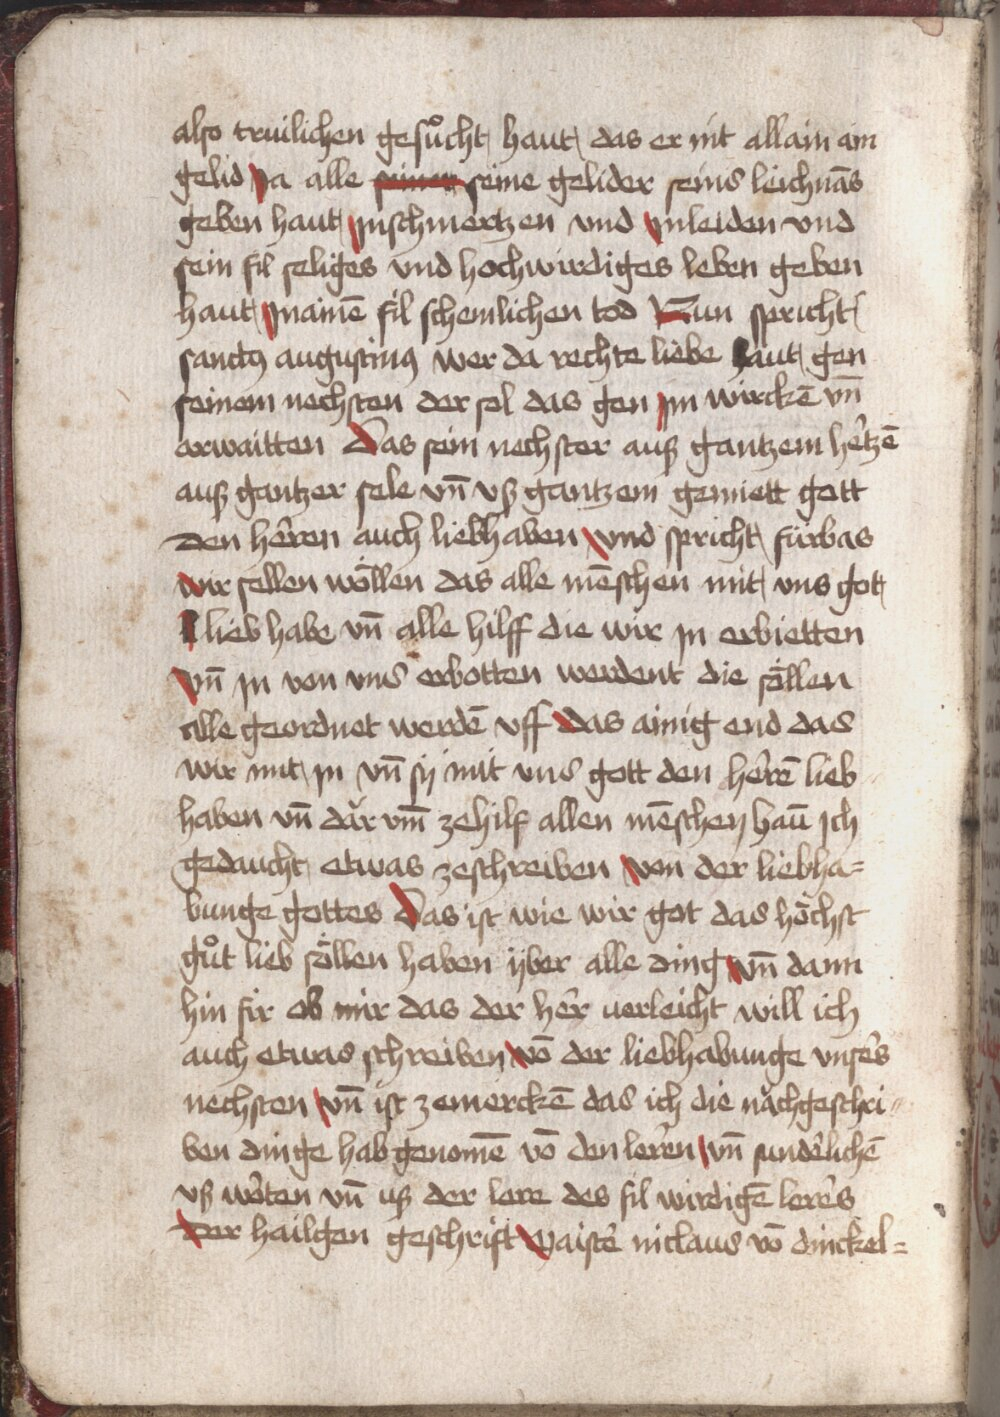 also truilichen gesuͦcht haut das er nit allain ain
gelid Ja alle seiner seine gelider seins leichnãs
geben haut Jnschmertzen vnd Jnleiden vnd
sein fil seliges vnd hochwirdiges leben geben
haut Jnainẽ fil schemlichen tod Nun spricht
sanctꝰ augustinꝰ wer da rechte liebe haut gen
seinem nechsten der sol das gen Jm wirckẽ vn̄
arwaitten Das sein nechster auß gantzem hertzẽ
auß gantzer sele vn̄ vß gantzem gemiett gott
Den herren auch liebhaben Vnd spricht fürbas
Wir sellen wöllen das alle mẽschen mit vns got
lieb habe vn̄ alle hilff die wir Jn erbietten
Vn̄ Jn von vns erbotten werdent die söllen
alle geordnet werdẽ vff Das ainig end das
wir mit Jn vn̄ sÿ mit vns gott den herrẽ lieb
haben vn̄ dar vm̄ zehilf allen mẽschen haũ Jch
gedaucht etwas zeschreiben Von der liebha=
bunge gottes Das ist wie wir got das höchst
guͦt lieb söllen haben ÿber alle ding Vn̄ dann
hin fir ob mir das der her verleicht will ich
auch etwas schreiben Võ der liebhabunge vnsers
nechsten Vn̄ ist zemerckẽ das ich die nachgeschri=
ben dinge hab genomẽ võ den leren Vn̄ sunderlichẽ
vß worten vn̄ uß der lere des fil wirdigẽ lerers
Der hailgen geschrift Maister niclaus võ dinckel=